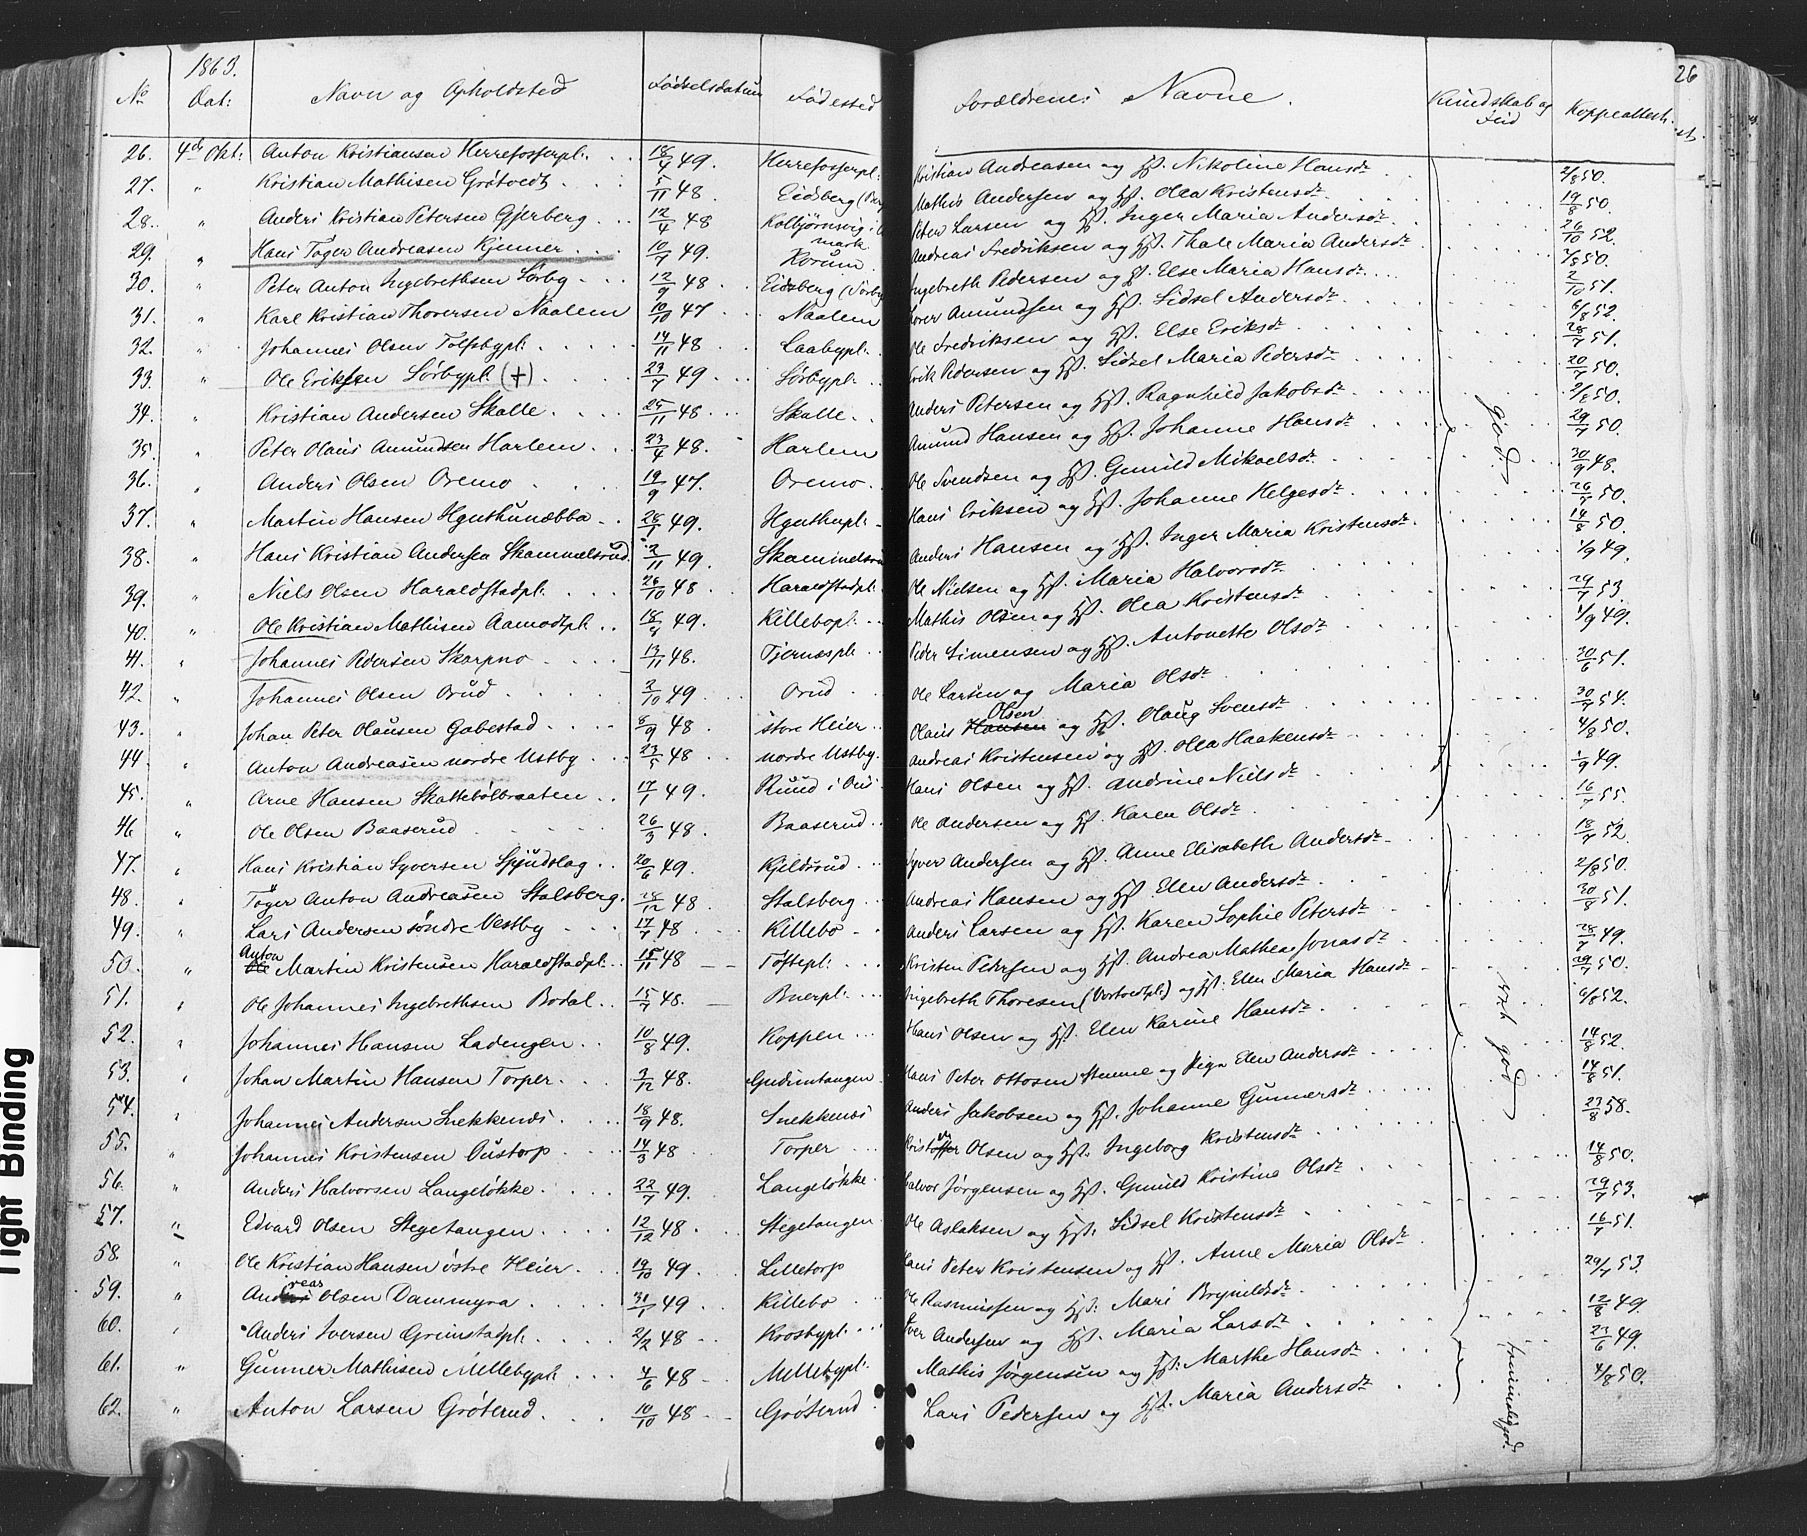 1863.
26
No Dat: Navn og Opholdsted Fødselsdatum Fødested Forældrenes Navne. Kundskab og Flid Koppeattest.
26. 4de Okt: Anton Kristiansen Herrefosserpl. 18/7 49. Herrefosserpl. Kristian Andreasen og Hst. Nikoline Hansdr 2/8 50.
27. " Kristian Mathisen Grøtvedt 5/11 48 Eidsberg Mathis Andersen og Hst. Olea Kristensdr 19/8 50.
28. " Anders Kristian Petersen Gjerberg 12/4 48 Kolbjørnsvig i mark Peter Larsen og Hst. Inger Maria Andersdr 26/10 52.
29. " Hans Tøger Andreasen Kjenner 10/7 49. Korum Andreas Fredriksen og Hst. Thale Maria Andersdr 50.
30. " Peter Anton Ingebrethsen Sørby 12/9 48 Eidsberg (Sørby Ingebreth Pedersen og Hst. Else Maria Hansdr 2/10 51.
31. " Karl Kristian Thoresen Naalem 10/10 47 Naalem Tover Amundsen og Hst. Sidsel Andersdr 6/8 52.
32. " Johannes Olsen Tolfsbypl. 14/11 48 Laabypl. Ole Fredriksen og Hst. Else Eriksdr 28/7 51.
33. " Ole Eriksen Sørbypl. (+) 23/7 49 Sørbypl. Erik Pedersen og Hst. Sidsel Maria Pedersdr 20/7 50.
34. " Kristian Andersen Skalle 25/11 48 Skalle Anders Petersen og Hst. Ragnhild Jakobsdr 2/8 50.
35. " Peter Olaus Amundsen Harlem 23/4 48. Harlem Amund Hansen og Hst. Johanne Hansdr god. 29/7 50.
36. " Anders Olsen Oremo 19/9 47. Oremo Ole Svendsen og Hst. Gunild Mikaelsdr 30/9 48.
37. " Martin Hansen Hguthunæbba 28/1 49. Hguthupl. Hans Eriksen og Hst. Johanne Helgesdr 26/7 50.
38. " Hans Kristian Andersen Skammelsrud 2/11 49. Skammelsrud Anders Hansen og Hst. Inger Maria Kristensdr 14/8 50.
39. " Niels Olsen Haraldstadpl. 26/10 48 Haraldstadpl. Ole Nielsen og Hst. Maria Halvorsdr 1/9 49.
40. " Ole Kristian Mathisen Aamodtpl. 18/8 49. Killebopl. Mathis Olsen og Hst. Olea Kristensdr 29/7 53.
41. " Johannes Pedersen Skarpno 13/11 48. Tjernæspl. Peder Simensen og Hst. Antonette Olsdr 1/9 49.
42. " Johannes Olsen Orud 2/10 49 Orud Ole Larsen og Maria Olsdr 30/6 51.
43. " Johan Peter Olausen Gabestad 8/9 48 store Heier Olaus Hansen Olsen og Hst. Olaug Svensdr 30/7 54.
44 " Anton Andreasen nordre Ustby 23/5 48 nordre Ustby Andreas Kristensen og Hst. Olea Haakensdr 4/8 50.
45. " Arne Hansen Skattebølbraaten 17/1 49. Ruud i Hans Olsen og Hst. Andrine Nielsdr 1/9 49.
46 " Ole Olsen Baaserud 26/3 48. Baaserud Ole Andersen og Hst. Karen Olsdr 16/7 55.
47. " Hans Kristian Syversen Spjudslag 20/6 49. Kjeldsrud Syver Andersen og Hst. Anne Elisabeth Andersdr 18/7 52.
48. " Tøger Anton Andreasen Stalsberg 28/12 48 Stalsberg Andreas Hansen og Hst. Elen Andersdr 2/8 50.
49. " Lars Andersen søndre Vestby 17/7 48 Killebo Anders Larsen og Hst. Karen Sophie Petersdr 30/8 51.
50. " Ole Anton Martin Kristensen Haraldstadpl. 15/11 48 Toftepl. Kristen Pedersen og Hst. Andrea Mathea Jonasdr 28/7 49.
51. " Ole Johannes Ingebrethsen Bodal 15/7 48. Buerpl. Ingebreth Thoresen (Vortvedtpl.) og Hst. Elen Maria Hansdr 29/7 50.
52. " Johannes Hansen Ladengen 10/8 49. Koppen Hans Olsen og Hst. Elen Karine Hansdr mt god 6/8 52.
53. " Johan Martin Hansen Torper 3/12 48. Gudimtangen Hans Peter Ottosen Stumne og Piga Elen Andersdr 14/8 52.
54. " Johannes Andersen Snekkenes 18/9 48. Snekkenes Anders Jakobsen og Hst. Johanne Gunnersdr 14/8 51.
55. " Johannes Kristensen Oustorp 14/3 48 Torper Kristoffer Olsen og Hst. Ingeborg Kristensdr 23/8 58.
56. " Anders Halvorsen Langeløkke 22/7 49. Langeløkke Halvor Jørgensen og Hst. Gunild Kristine Olsdr 14/8 50.
57. " Edvard Olsen Stegetangen 12/12 48 Stegetangen Ole Aslaksen og Hst. Sidsel Kristensdr 29/7 53.
58. " Ole Kristian Hansen østre Heier 19/10 49. Lilletorp Hans Peter Kristensen og Hst. Anne Maria Olsdr 16/7 51.
59. " Andreas Olsen Dammyra 31/1 49 Killebo Ole Rasmussen og Hst. Mari Brynildsdr 29/7 53.
60. " Anders Iversen Grimstadpl. 2/2 48 Krosbypl. Iver Andersen og Hst. Maria Larsdr 12/8 49.
61. " Gunner Mathisen Millebypl. 4/6 48 Millebypl. Mathis Jørgensen og Hst. Marthe Hansdr temmelig god. 23/6 49.
62. " Anton Larsen Grøterud. 10/10 48 Grøterud Lars Pedersen og Hst. Maria Andersdr 4/8 50.
Tight Binding